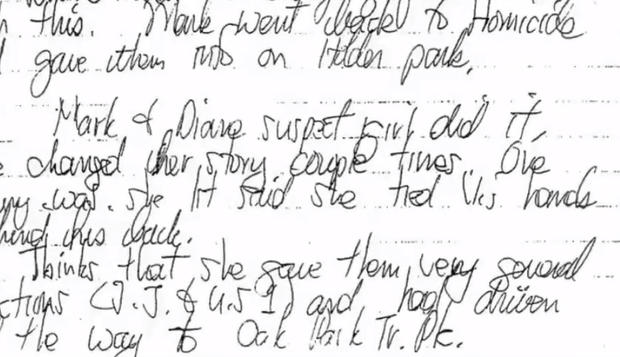 this. Mark went back to Homicide
gave them info on Hidden park.
Mark & Diane suspect girl did it,
changed her story couple times. One
was she said she tied his hands
his back.
Thinks that she gave them very several
(J.J. & U.S 1) and had driven
the way to Oak Park Tr. Pk.